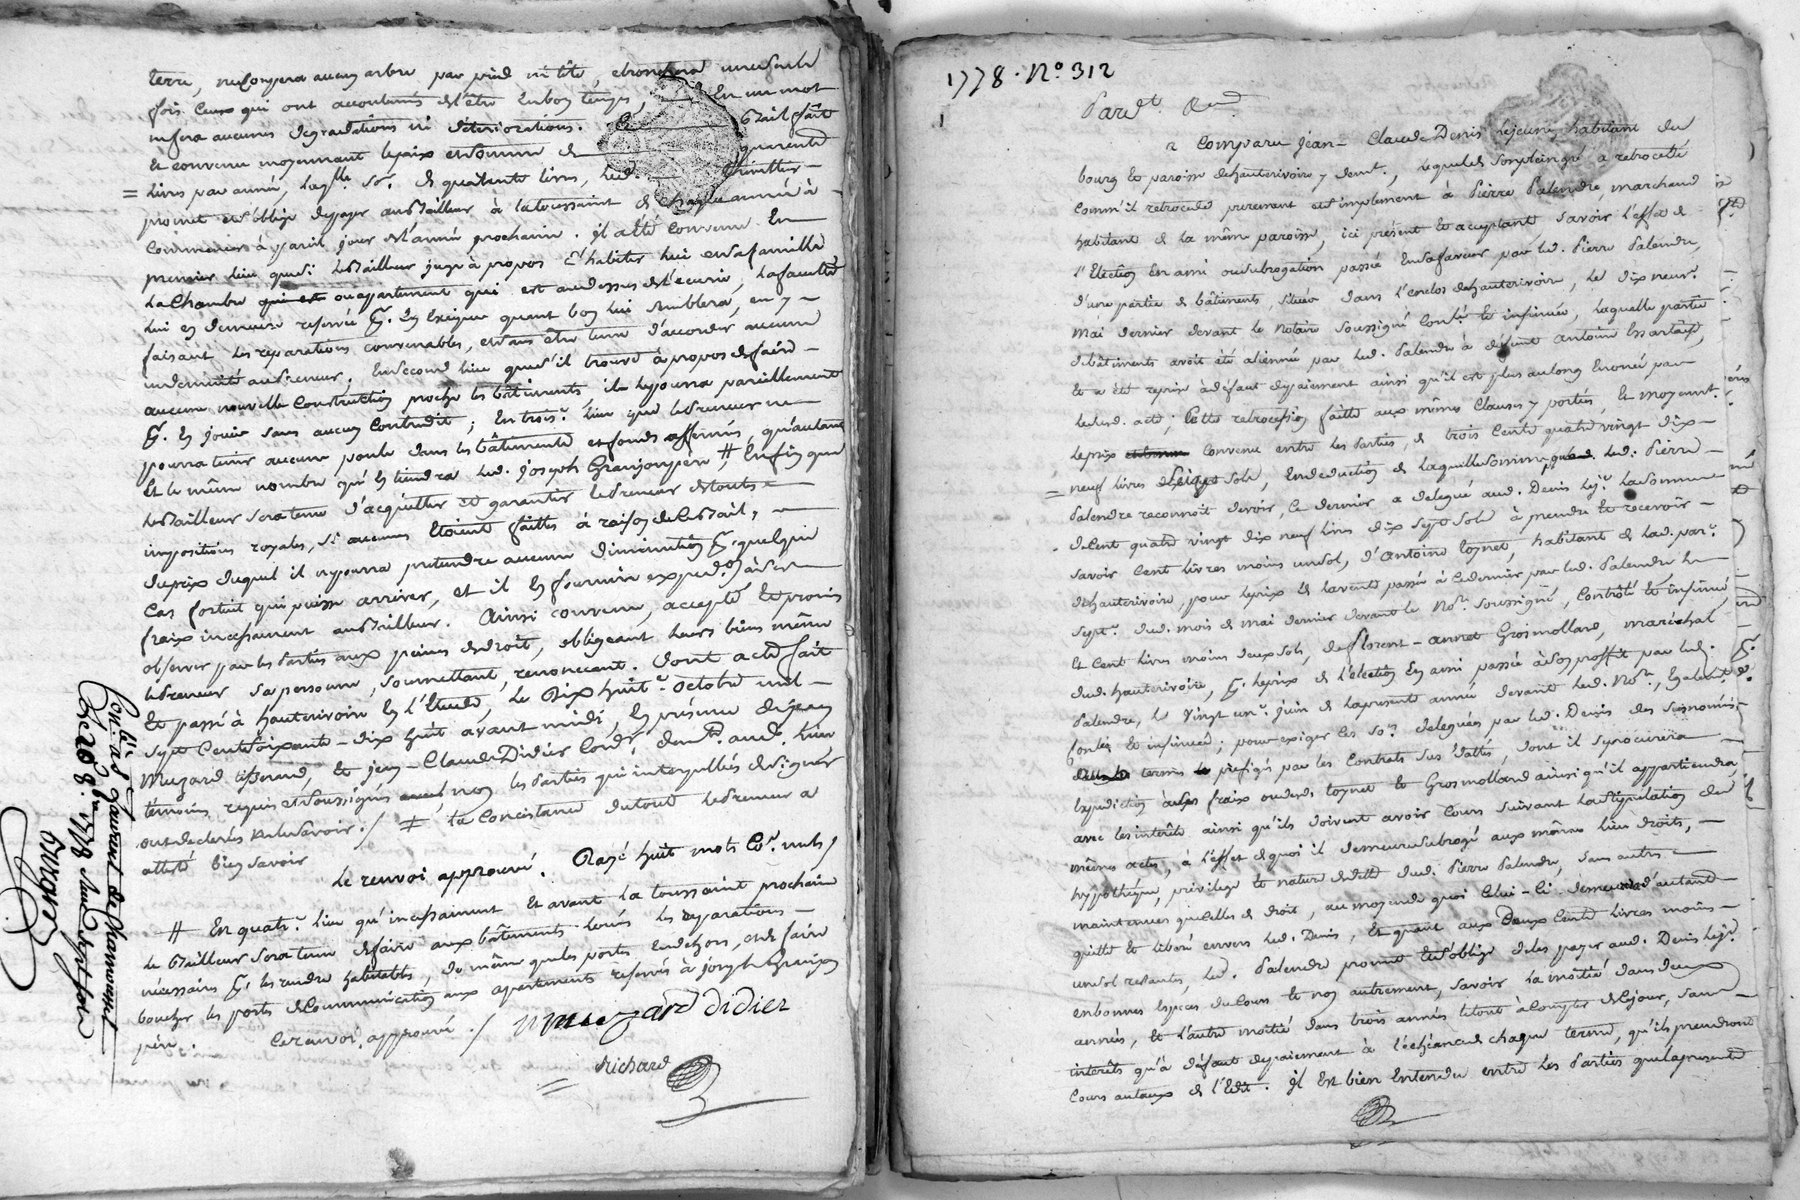 terre, ne coupera aucun arbre par pied ni tête, ebranchera une seule
fois ceux qui ont accoutumés de l'être en bon temps, En un mot
ne fera aucunes degradations ni déteriorations. Ce Bail fait
Et convenu moyennant le prix et somme de quarente
livres par année, laq.lle so.e de quarente livres, led.
promet et s'oblige de payer au Bailleur à la toussaint de chaque année à
commencer à pareil jour de l'année prochaine. il a été convenu En
premier lieu que si le Bailleur juge à propos d'habiter lui et sa famille
la chambre ou appartement qui est au dessus de l'ecurie, la faculté
lui en demeure reservée p.r En Exciper quant bon lui semblera, en y
faisant les reparations convenables, et sans être tenu d'accorder aucune
indemnité au Preneur; En second lieu que s'il trouve à propos de faire
aucune nouvelle construction proche les bâtiments il le pourra pareillement
p.r En jouir sans aucun contredit; En trois.e lieu que le Preneur ne
pourra tenir aucune poule dans les bâtiments et fonds affermés, qu'autant
Et le même nombre qu'en tiendra led. joseph Granjonpere #, Enfin que
le Bailleur sera tenu d'acquitter et garantir le Preneur de toutes
impositions royales, si aucunes Etoient faittes à raison de ce Bail,
du prix duquel il ne pourra pretendre aucune diminution p.r quelque
cas fortuit qui puisse arriver, et il En fournira exped.on à ses
fraix incessament au Bailleur. Ainsi convenu, accepté Et promis
observer par les Parties aux peines de droit, obligeant leurs biens même
le Preneur sa personne, soumettant, renonceant. dont acte fait
Et passé à hauterivoire En l'Etude, le Dix huit.e octobre mil
sept cent soixante-dix huit avant midi, En présence de jean
Muzard tisserand, Et jean-Claude Didier cord.r dem.ts aud. lieu
temoins requis et soussignés non les Parties qui interpellées de signer
ont declarés ne le savoir ./ # la consistance du tout le Preneur a
attesté bien savoir
le renvoi approuvé. Rayé huit mots co.e nuls/
# En quatr.e lieu qu'incessament Et avant la toussaint prochaine
le Bailleur sera tenu de faire aux bâtiments loués les reparations
nécessaires p.r les rendre habitables, de même que les portes en dehors, et de faire
boucher les portes de communication aux apartements reservés à joseph Granjon
pere. le renvoi approuvé ./ Muzard didier
Richard
Con.lé à S.t Laurent de Chamousset
Le 20 8.bre 1778
1778. N.o 312
Pard.t &
a comparu jean-Claude Denis le jeune habitant du
bourg et paroisse de hauterivoire y dem.t, lequel de son plein gré a retrocedé
comm'il retrocede purement et simplement à Pierre Palendre, marchand
habitant de la même paroisse, ici présent et acceptant savoir l'effet de
l'Election En ami ou subrogation passée En sa faveur par led. Pierre Palendre,
d'une partie de bâtiments, située dans l'enclos de hauterivoire, le dix neuv.e
mai dernier devant le notaire soussigné cont.lé et insinué, laquelle partie
de bâtiments avoit été alienée par led. Palendre à défunt antoine Essartest,
Et a été reprise à défaut de paiement ainsi qu'il est plus au long Enoncé par
le susd. acte; Cette retrocession faitte aux mêmes clauses y portées, Et moyenn.t
le prix convenu entre les Parties, de trois cent quatre vingt dix
neuf livres sols, En deduction de laquelle somme led. Pierre
Palendre reconnoit devoir, ce dernier a delegué aud. Denis le j.e la somme
de cent quatre vingt dix neuf livres dix sept sols à prendre et recevoir
savoir cent livres moins un sol, d'antoine loynet, habitant de lad. par.e
de hauterivoire, pour le prix de la vente passée à ce dernier par led. Palendre le
sept.e dud. mois de mai dernier devant le No.re soussigné, contrôlé et insinué,
Et cent livres moins deux sols, de florent-annet Grosmollard, maréchal
dud. hauterivoire, p.r le prix de l'election En ami passée à son proffit par led.
Palendre, le vingt un.e juin de la presente année devant led. No.re, Egalement
con.lée et insinuée; pour exiger les so.es deleguées par led. Denis des susnommés
termes prefigés par les contrats sus datés, dont il se procurera
Expedition à ses fraix ou desd. loynet et Grosmollard ainsi qu'il appartiendra,
avec les intérêts ainsi qu'ils doivent avoir cours suivant la stipulation des
mêmes actes, à l'effet de quoi il demeure subrogé aux mêmes lieu droits,
hypothèque, privilege et nature de dette dud. Pierre Palendre, sans autre
maintenue que celles de droit, au moyen de quoi celui-ci demeure d'autant
quitte et liberé envers led. Denis, Et quant aux Deux cents livres moins
un sol restantes, led. Palendre promet et s'oblige de les payer aud. Denis le j.e
en bonnes especes du cours et non autrement, savoir la moitié dans deux
années, Et l'autre moitié dans trois années le tout à compter de ce jour, sans
intérêts qu'à défaut de paiement à l'échéance de chaque terme, qu'ils prendront
cours au taux de l'Edit. il Est bien Entendu entre les Parties que la presente